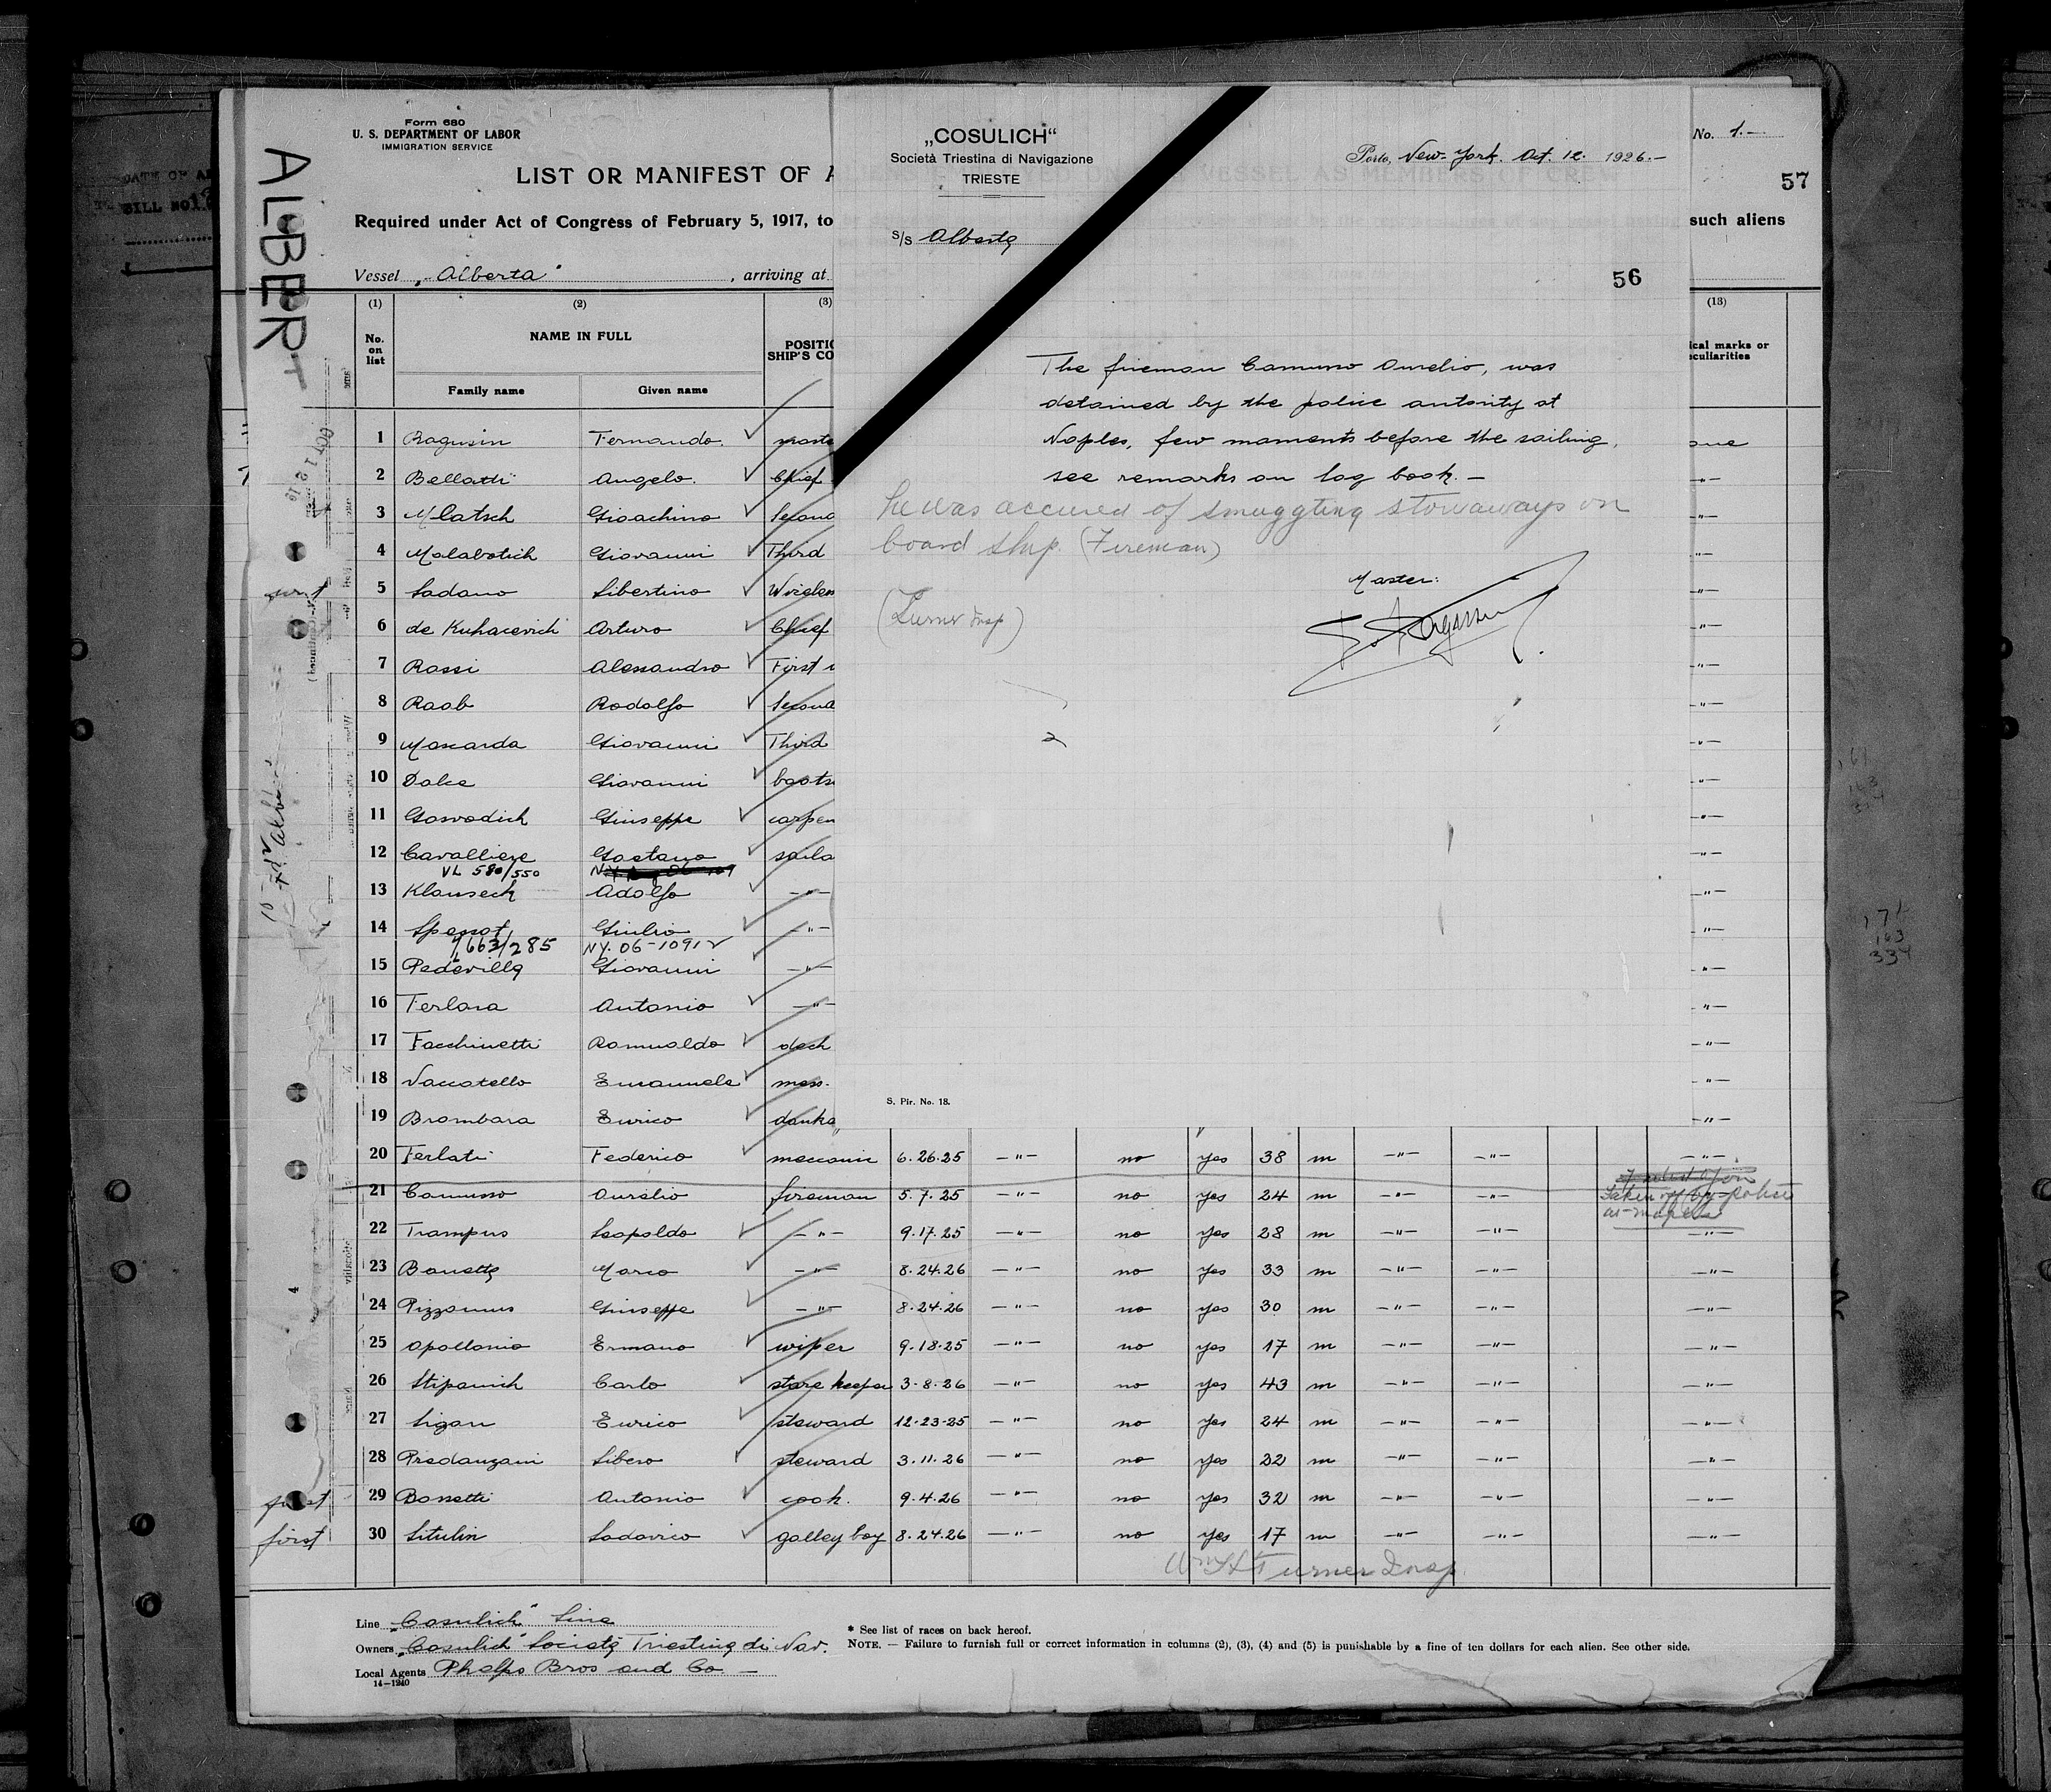 Form 680
U. S. DEPARTMENT OF LABOR
IMMIGRATION SERVICE
LIST OR MANIFEST OF A
Required under Act of Congress of February 5, 1917, to
such aliens
Vessel „Alberta" , arriving at
No. 1.—
57
ALBERT
„COSULICH“
Società Triestina di Navigazione
TRIESTE
Porto, New-York. Oct. 12. 1926.—
S/S Alberta
56
The fireman Camusso Aurelio, was
detained by the police autority at
Naples, few moments before the sailing,
see remarks on log book. —
he was accused of smuggting stowaways on
board ship. (Fireman)
(Turner Insp)
Master:
S. Pir. No. 18.
(1) (2) (3) (13)
No. on list
NAME IN FULL
POSITIO
SHIP'S CO
ical marks or
eculiarities
Family name Given name
1 Ragusin Fernando maste one
2 Bellatti Angelo. Chief —"—
3 Mlatsch Gioachino Second —"—
4 Malabotich Giovanni Third —"—
5 Sadano Libertino Wirelen —"—
6 de Kuhacevich Arturo Chief —"—
7 Rossi Alessandro First —"—
8 Raab Rodolfo Second —"—
9 Moscarda Giovanni Third —"—
10 Dolce Giovanni boots —"—
11 Gosvodich Giuseppe carpen —"—
12 Cavalliere Gaetano sailo —"—
VL 580/550
13 Klausech Adolfo —"— —"—
14 Spessot Giulio —"— —"—
663/285 NY. 06-1091
15 Pedevilla Giovanni —"— —"—
16 Terlara Antonio —"— —"—
17 Facchinetti Romualdo deck —"—
18 Vaccatello Emanuele mess. —"—
19 Brombara Enrico donke —"—
20 Ferlati Federico meccanic 6.26.25 —"— no yes 38 m —"— —"— —"—
21 Camusso Aurelio fireman 5.7.25 —"— no yes 24 m —"— —"—
Taken off by police
at Naples
22 Trampus Leopoldo —"— 9.17.25 —"— no yes 28 m —"— —"— —"—
23 Bonetta Marco —"— 8.24.26 —"— no yes 33 m —"— —"— —"—
24 Pizzamus Giuseppe —"— 8.24.26 —"— no yes 30 m —"— —"— —"—
25 Apollonio Ermano wiper 9.18.25 —"— no yes 17 m —"— —"— —"—
26 Stipanich Carlo store keeper 3-8-26 —"— no yes 43 m —"— —"— —"—
27 Sigon Enrico steward 12-23-25 —"— no yes 24 m —"— —"— —"—
28 Predanzani Libero steward 3.11.26 —"— no yes 22 m —"— —"— —"—
first 29 Bonetti Antonio cook. 9.4.26 —"— no yes 32 m —"— —"— —"—
first 30 Situlin Lodovico galley boy 8.24.26 —"— no yes 17 m —"— —"— —"—
Wm H Turner Insp.
Line „Cosulich" Line
Owners „Cosulich" Società Triestina di Nav.
Local Agents Phelps Bros and Co —
14—1240
* See list of races on back hereof.
NOTE. — Failure to furnish full or correct information in columns (2), (3), (4) and (5) is punishable by a fine of ten dollars for each alien. See other side.